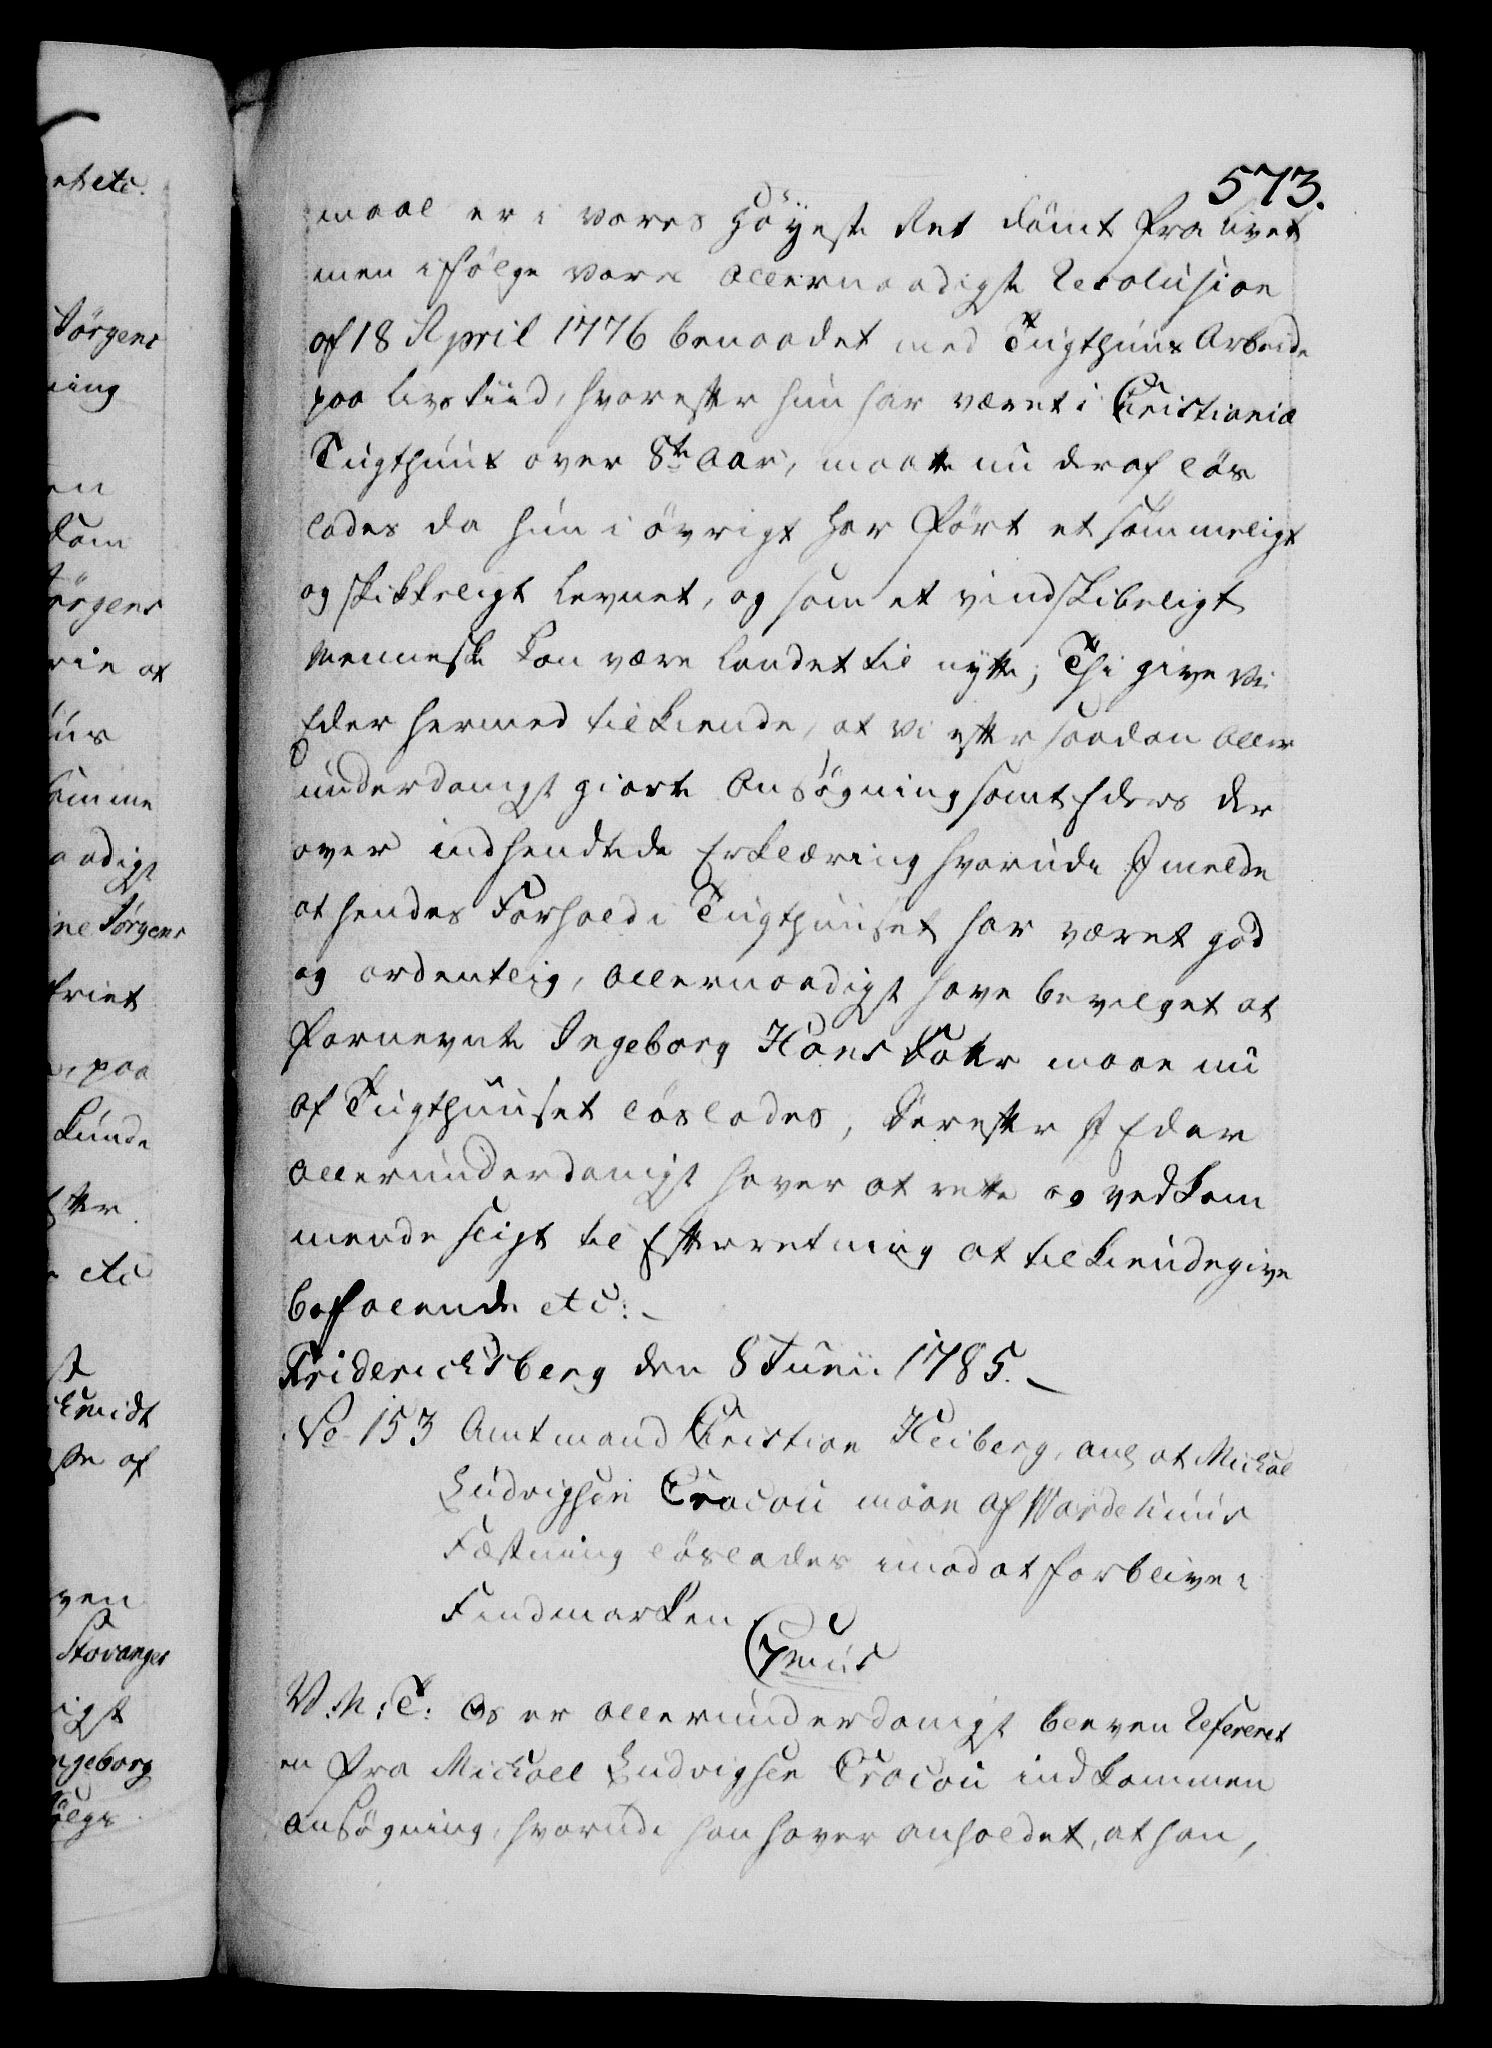 573.
maal er i vores Höyeste Ret dömt fra Livet
men ifölge vore Allernaadigste Resolusion
af 18 April 1776 benaadet med Tugthuus Arbeide
paa Livs tiid, hvorefter hun har været i Christiania
Tugthuus over 8te Aar, maatte nu deraf lös
lades da hun i övrigt har fört et sömmeligt
og skikkeligt Levnet, og som et vindskibeligt
Menneske kan være Landet til nytte; Thi give Vi
Eder hermed tilkiende, at vi efter saadan Aller
underdanigst giorte Ansögning samt Eders der
over indhendtede Erklæring hvorudi I melde
at hendes Forhold i Tugthuuset har været god
og ordentlig, Allernaadigst have bevilget at
fornevnte Ingeborg Hans Datter maae nu
af Tugthuuset löslades, Derefter I Eder
Allerunderdanigst haver at rette og vedkom
mende sligt til Efterretning at tilkiendegive
befalende etc:
Friderichsberg den 8 Junii 1785.
No 153 Amtmand Christian Heiberg, anl at Michal
Ludvigsen Cracou maae af Wardehuus
Fæstning löslades imod at forblive i
Findmarken
V. M: T: Os er Allerunderdanigst bleven Refereret
en fra Michael Ludvigsen Cracou indkommen
Ansögning, hvorudi han haver anholdet, at han,